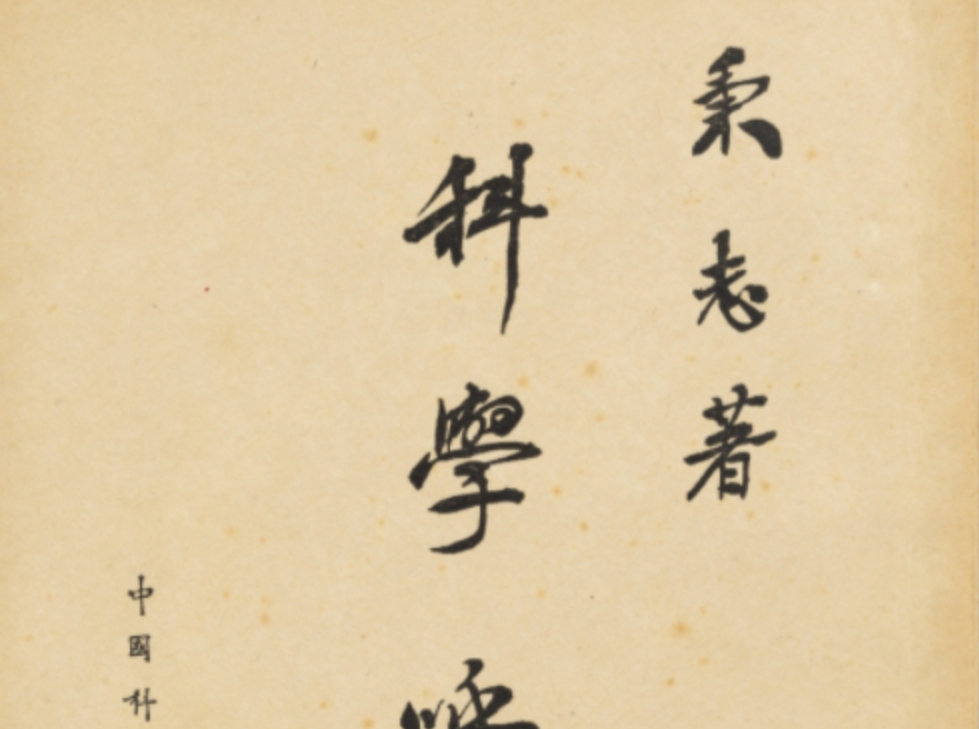 秉志著
科學呼
中國科